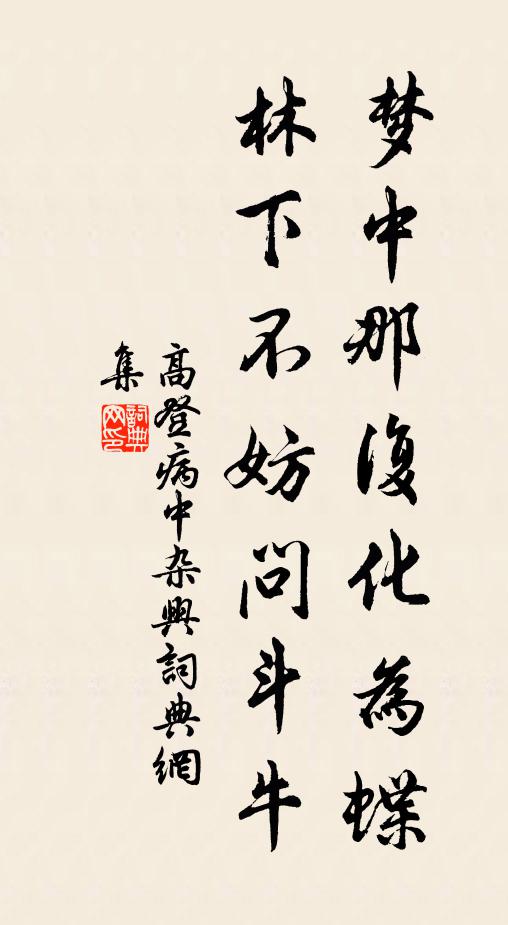 梦中那復化為蝶
林下不妨問斗牛
高登病中杂興詞典網
集
詞典网印